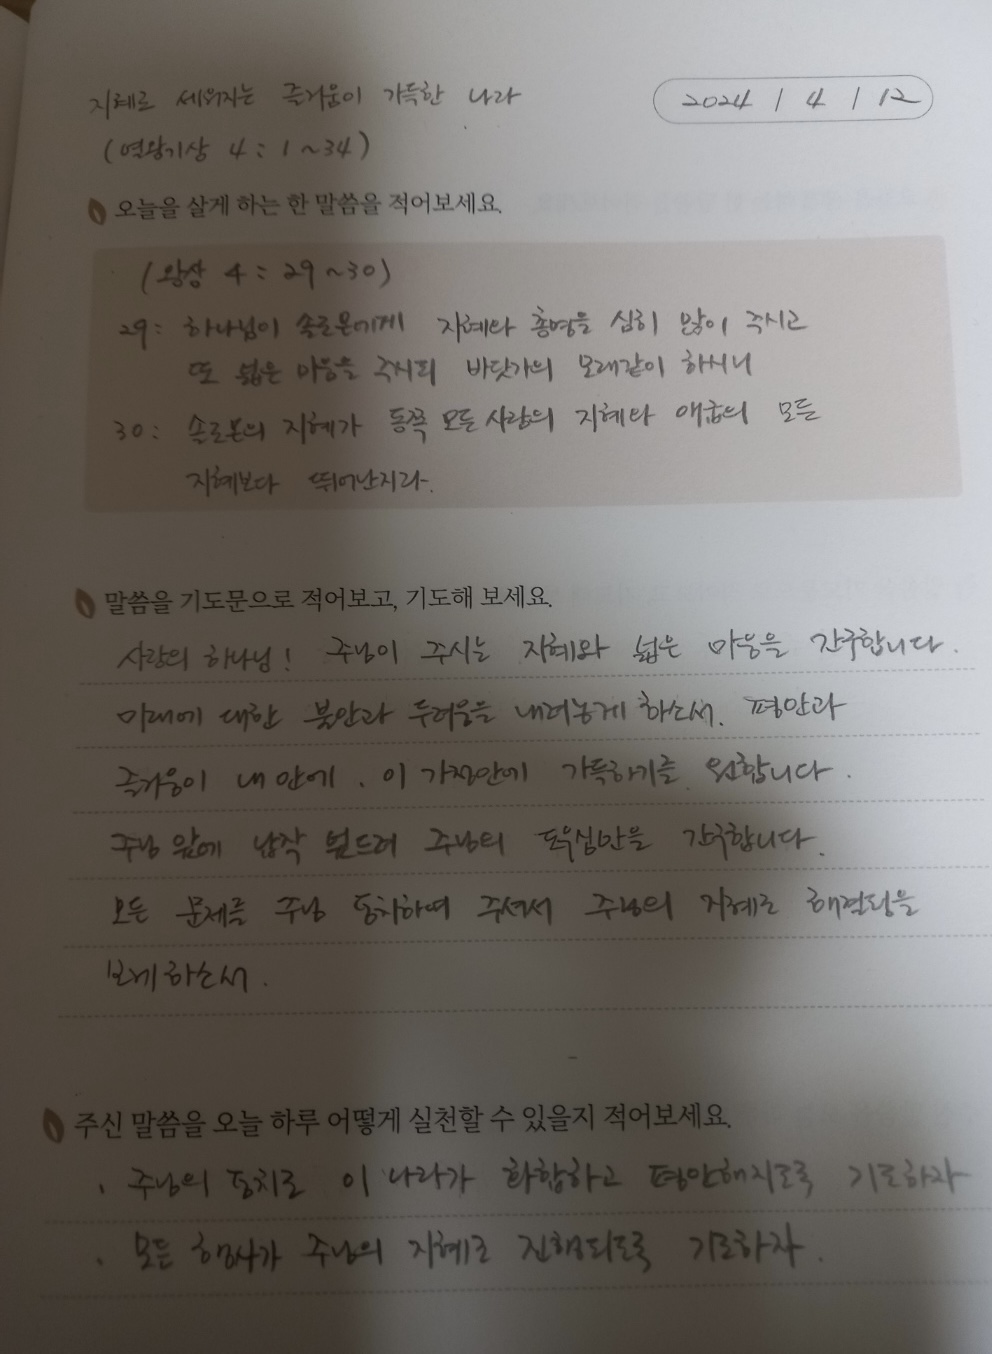 지혜로 세워지는 즐거움이 가득한 나라
2024 / 4 / 12
(열왕기상 4 : 1 ~34)
오늘을 살게 하는 한 말씀을 적어보세요.
(왕상 4 : 29 ~30)
29 : 하나님이 솔로몬에게 지혜와 총명을 심히 많이 주시고
또 넓은 마음을 주시되 바닷가의 모래같이 하시니
30 : 솔로몬의 지혜가 동쪽 모든 사람의 지혜와 애굽의 모든
지혜보다 뛰어난지라.
말씀을 기도문으로 적어보고, 기도해 보세요.
사랑의 하나님! 주님이 주시는 지혜와 넓은 마음을 간구합니다.
미래에 대한 불안과 두려움을 내려놓게 하소서. 평안과
즐거움이 내 안에, 이 가정안에 가득하기를 원합니다.
주님 앞에 납작 엎드려 주님의 도우심만을 간구합니다.
모든 문제를 주님 통치하여 주셔서 주님의 지혜로 해결됨을
보게 하소서.
주신 말씀을 오늘 하루 어떻게 실천할 수 있을지 적어보세요.
. 주님의 통치로 이 나라가 화합하고 평안해지도록 기도하자
. 모든 행사가 주님의 지혜로 진행되도록 기도하자.